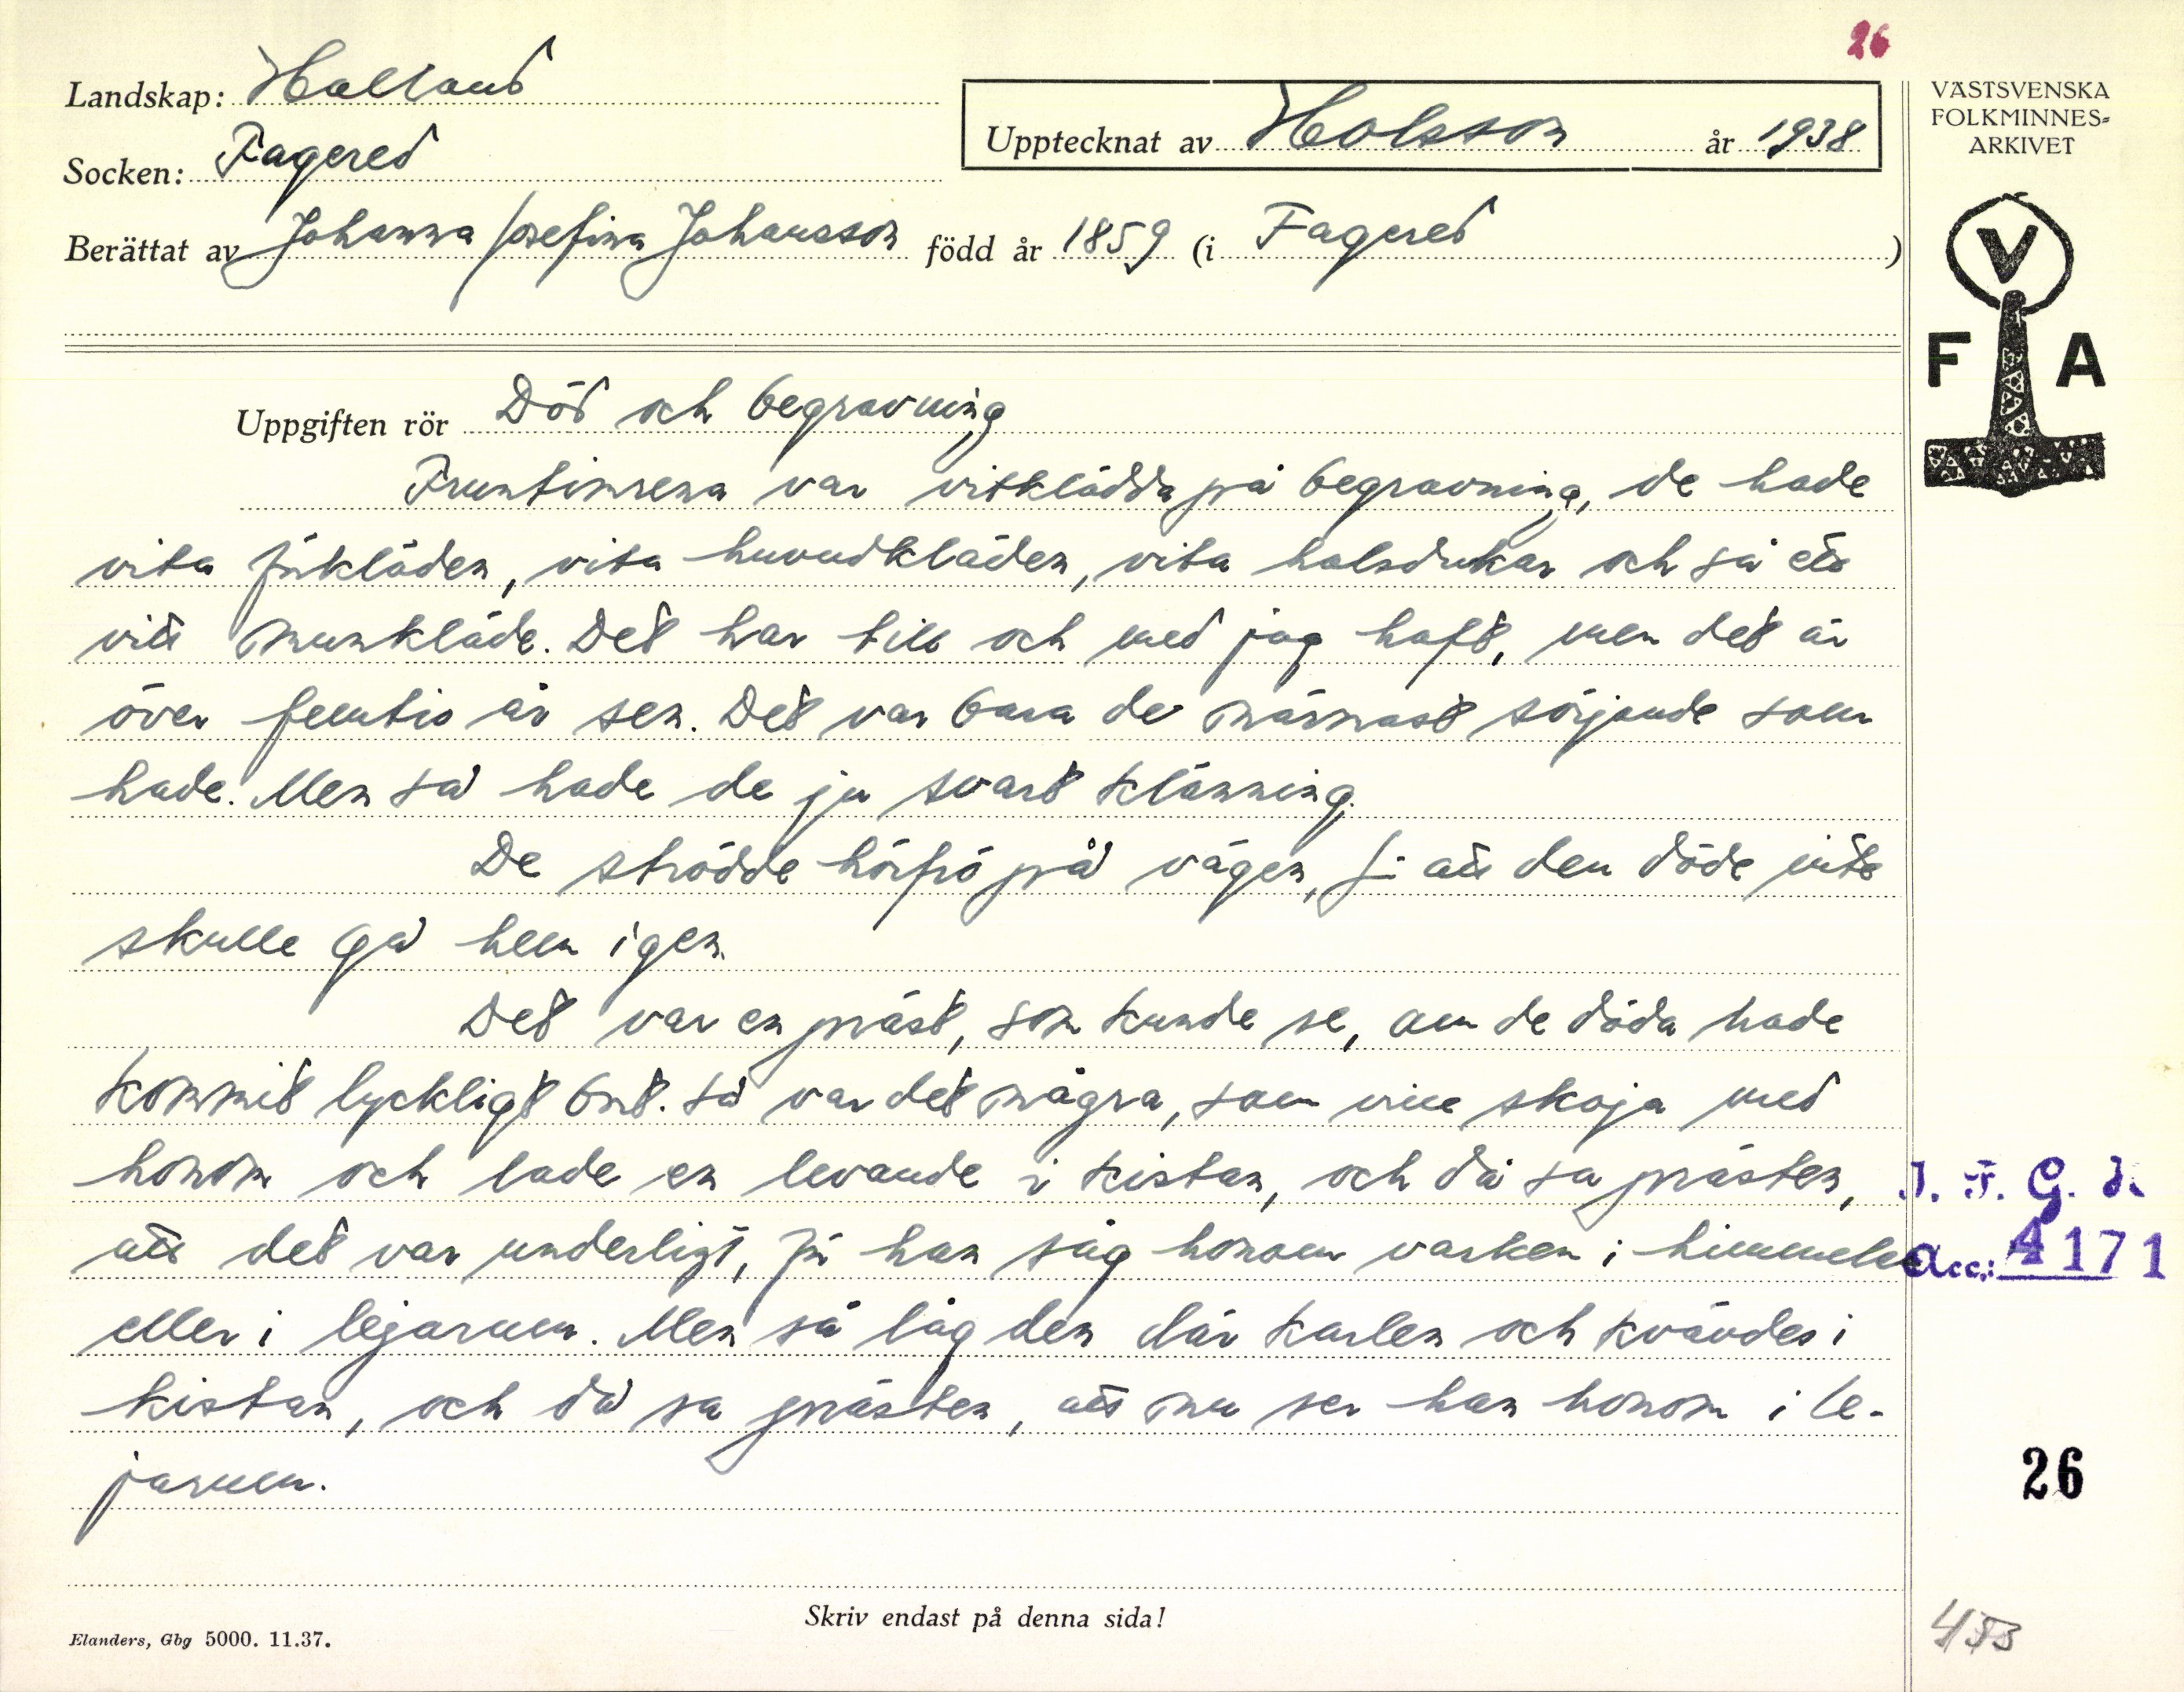 26
Landskap: Halland
Upptecknat av Holsson år 1938
VÄSTSVENSKA
FOLKMINNES-
ARKIVET
Socken: Fagered
Berättat av Johanna Josefina Johansson född år 1859 (i Fagered )
V
F A
Uppgiften rör Död och begravning
Fruntimrena var vitklädda på begravning, de hade
vita förkläden, vita huvudkläden, vita halsdukar och så ett
vitt munkläde. Det har till och med jag haft, men det är
över femtio år sen. Det var bara de närmast sörjande som
hade. Men så hade de ju svart klänning.
De strödde hörfrö på vägen, f: att den döde inte
skulle gå hem igen.
Det var en präst, som kunde se, om de döda hade
kommit lyckligt bort. Så var det några, som ville skoja med
honom och lade en levande i kistan, och då sa prästen,
att det var underligt, för han såg honom varken i himmelen
eller i lejarum. Men så låg den där karlen och kvävdes i
kistan, och då sa prästen, att nu ser han honom i le-
jarum.
I. F. G. H.
Acc.: 4171
26
Skriv endast på denna sida!
Elanders, Gbg 5000. 11.37.